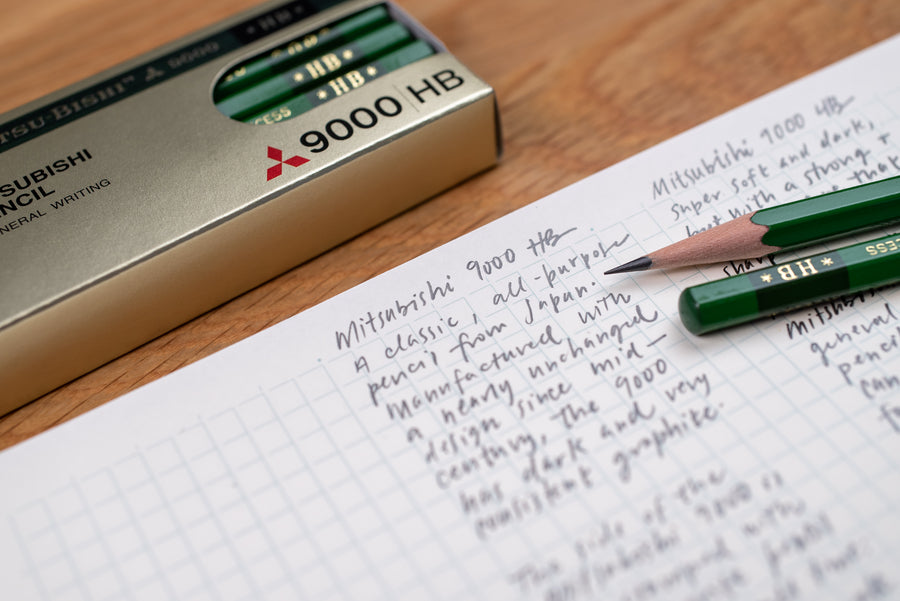 TSU-BISHI™ 9000 * HB *
* HB *
* HB *
CESS
9000 HB
SUBISHI
NCIL
NERAL WRITING
Mitsubishi 9000 HB
A classic, all-purpose
pencil from Japan.
Manufactured with
a nearly unchanged
design since mid-
century, the 9000
has dark and very
consistent graphite.
This side of the
Mitsubishi 9000 is
with
Mitsubishi 9000 HB
super soft and dark,
but with a strong +
that
sharp
* HB *
CESS
Mitsubishi
general
pencil
can